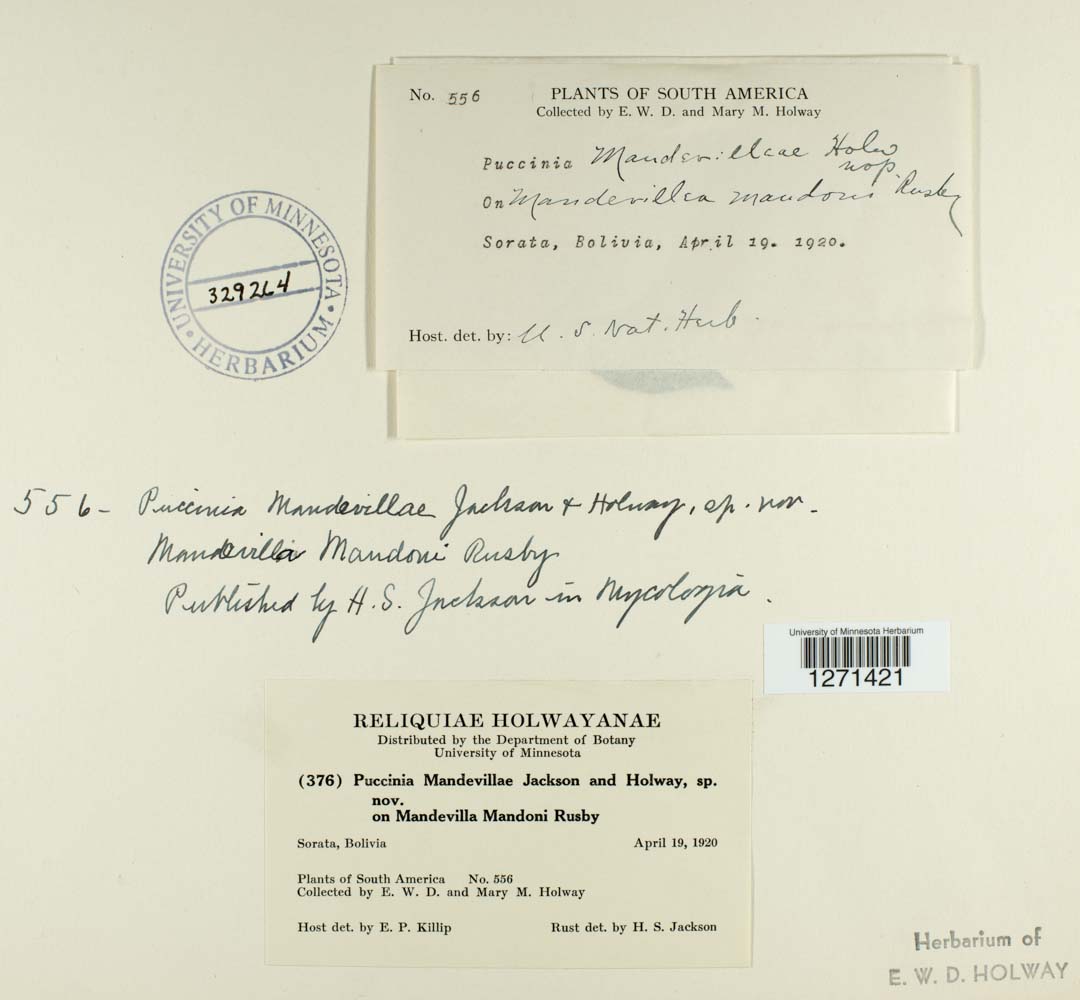 No. 556
PLANTS OF SOUTH AMERICA
Collected by E. W. D. and Mary M. Holway
Puccinia Mandevilleae Holw
nop.
On Mandevillea mandoni Rusby
Sorata, Bolivia, April 19. 1920.
Host. det. by: U. S. Nat. Herb.
UNIVERSITY OF MINNESOTA
329264
HERBARIUM
556- Puccinia Mandevillae Jackson & Holway, sp. nov.
Mandevilla Mandoni Rusby
Published by H. S. Jackson in Mycologia.
University of Minnesota Herbarium
1271421
RELIQUIAE HOLWAYANAE
Distributed by the Department of Botany
University of Minnesota
(376) Puccinia Mandevillae Jackson and Holway, sp.
nov.
on Mandevilla Mandoni Rusby
Sorata, Bolivia April 19, 1920
Plants of South America No. 556
Collected by E. W. D. and Mary M. Holway
Host det. by E. P. Killip Rust det. by H. S. Jackson
Herbarium of
E. W. D. HOLWAY